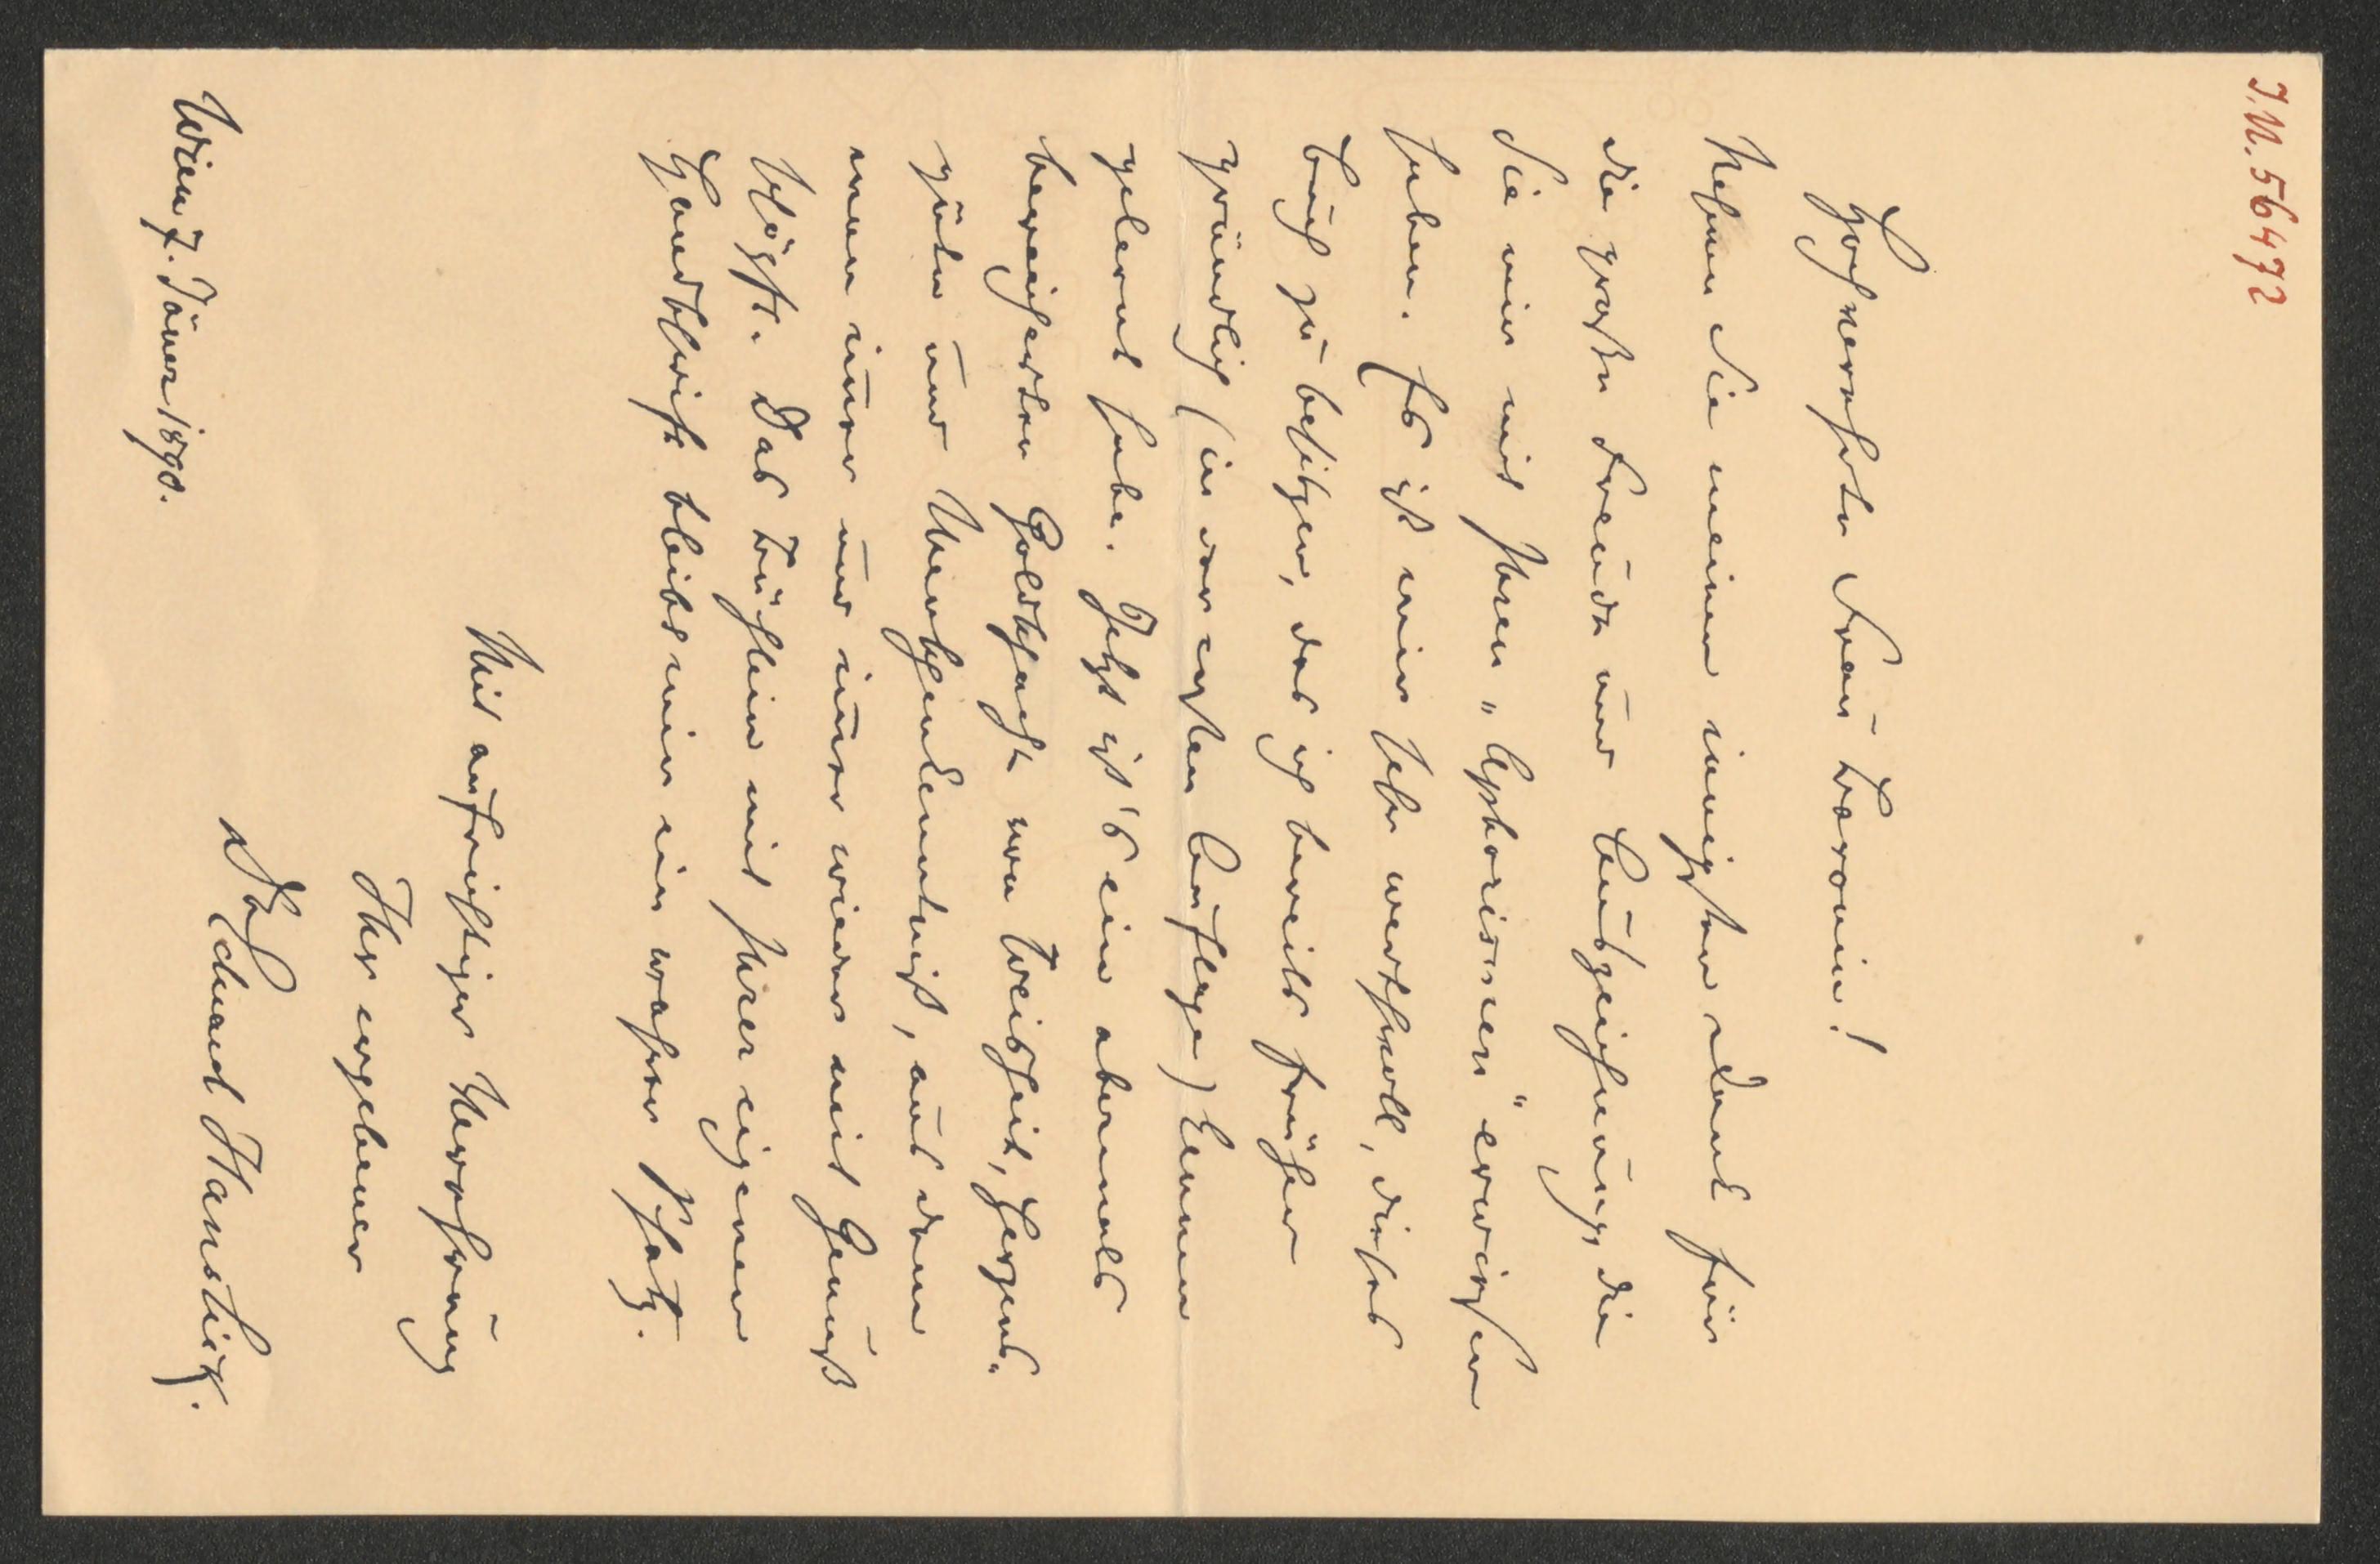 J.N. 56472
Hochverehrte Frau Baronin!
Nehmen Sie meinen innigsten Dank für
die große Freude und Auszeichnung, die
Sie mir mit Ihren „Aphorismen“ erwiesen
haben. Es ist mir sehr werthvoll, dieses
Buch zu besitzen, das ich bereits früher
gründlich (in der ersten Auflage) kennen
gelernt habe. Jetzt ist's ein abermals
bereicherter Goldschacht von Weisheit, Herzens-
güte und Menschenkenntniß, aus dem
man immer und immer wieder mit Genuß
schöpft. Das Büchlein mit Ihrer eigenen
Handschrift bleibt mir ein wahrer Schatz.
Mit aufrichtiger Verehrung
Ihr ergebener
Dr Eduard Hanslick.
Wien 7. Jäner 1890.